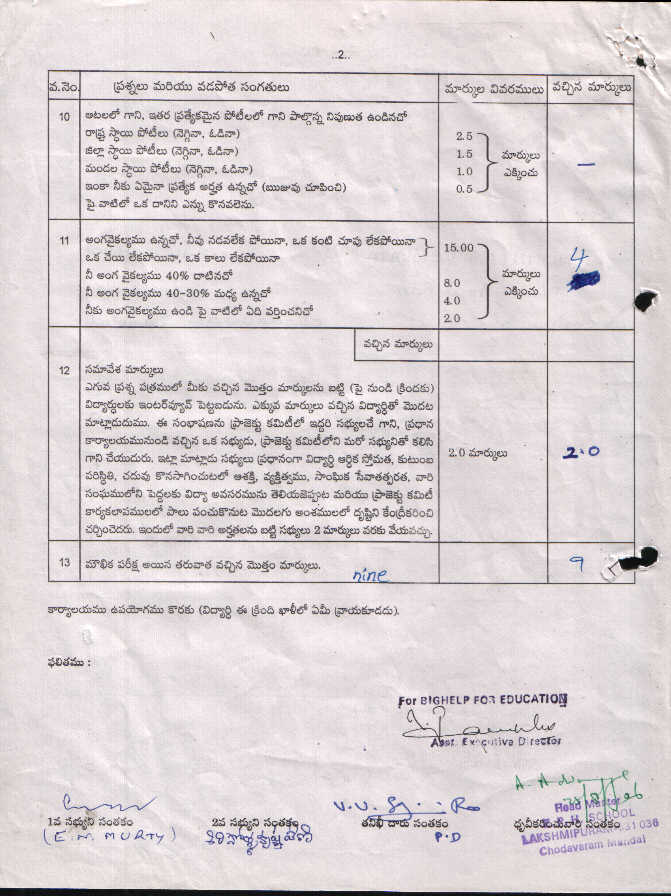 ..2..
వ.నెం. ప్రశ్నలు మరియు వడపోత సంగతులు మార్కుల వివరములు వచ్చిన మార్కులు
10 ఆటలలో గాని, ఇతర ప్రత్యేకమైన పోటీలలో గాని పాల్గొన్న నిపుణత ఉండినచో
రాష్ట్ర స్థాయి పోటీలు (నెగ్గినా, ఓడినా) 2.5
జిల్లా స్థాయి పోటీలు (నెగ్గినా, ఓడినా) 1.5 మార్కులు
మండల స్థాయి పోటీలు (నెగ్గినా, ఓడినా) 1.0 ఎక్కించు –
ఇంకా నీకు ఏమైనా ప్రత్యేక అర్హత ఉన్నచో (ఋజువు చూపించి) 0.5
పై వాటిలో ఒక దానిని ఎన్ను కొనవలెను.
11 అంగవైకల్యము ఉన్నచో, నీవు నడవలేక పోయినా, ఒక కంటి చూపు లేకపోయినా 15.00
ఒక చేయి లేకపోయినా, ఒక కాలు లేకపోయినా 4
నీ అంగ వైకల్యము 40% దాటినచో 8.0 మార్కులు
నీ అంగ వైకల్యము 40-30% మధ్య ఉన్నచో 4.0 ఎక్కించు
నీకు అంగవైకల్యము ఉండి పై వాటిలో ఏది వర్తించనిచో 2.0
వచ్చిన మార్కులు
12 సమావేశ మార్కులు
ఎగువ ప్రశ్న పత్రములో మీకు వచ్చిన మొత్తం మార్కులను బట్టి (పై నుండి క్రిందకు)
విద్యార్ధులకు ఇంటర్వ్యూవ్ పెట్టబడును. ఎక్కువ మార్కులు వచ్చిన విద్యార్ధితో మొదట
మాట్లాడుదుము. ఈ సంభాషణను ప్రాజెక్టు కమిటీలో ఇద్దరి సభ్యులచే గాని, ప్రధాన
కార్యాలయమునుండి వచ్చిన ఒక సభ్యుడు, ప్రాజెక్టు కమిటీలోని మరో సభ్యునితో కలిసి
గాని చేయుదురు. ఇట్లా మాట్లాడు సభ్యులు ప్రధానంగా విద్యార్ధి ఆర్ధిక స్తోమత, కుటుంబ 2.0 మార్కులు 2.0
పరిస్థితి, చదువు కొనసాగించుటలో ఆశక్తి, వ్యక్తిత్వము, సాంఘిక సేవాతత్పరత, వారి
సంఘములోని పెద్దలకు విద్యా అవసరమును తెలియజెప్పుట మరియు ప్రాజెక్టు కమిటీ
కార్యకలాపములలో పాలు పంచుకొనుట మొదలగు అంశములలో దృష్టిని కేంద్రీకరించి
చర్చించెదరు. ఇందులో వారి వారి అర్హతలను బట్టి సభ్యులు 2 మార్కులు వరకు వేయవచ్చు.
13 మౌఖిక పరీక్ష అయిన తరువాత వచ్చిన మొత్తం మార్కులు. 9
nine
కార్యాలయము ఉపయోగము కొరకు (విద్యార్ధి ఈ క్రింది ఖాళీలో ఏమీ వ్రాయకూడదు).
ఫలితము :
For BIGHELP FOR EDUCATION
Asst. Executive Director
1వ సభ్యుని సంతకం 2వ సభ్యుని సంతకం తనిఖీ దారు సంతకం ధృవీకరించువారి సంతకం
(E. M. MURTY) P.D
Head Master
SCHOOL
LAKSHMIPURAM-531 036
Chodavaram Mandal